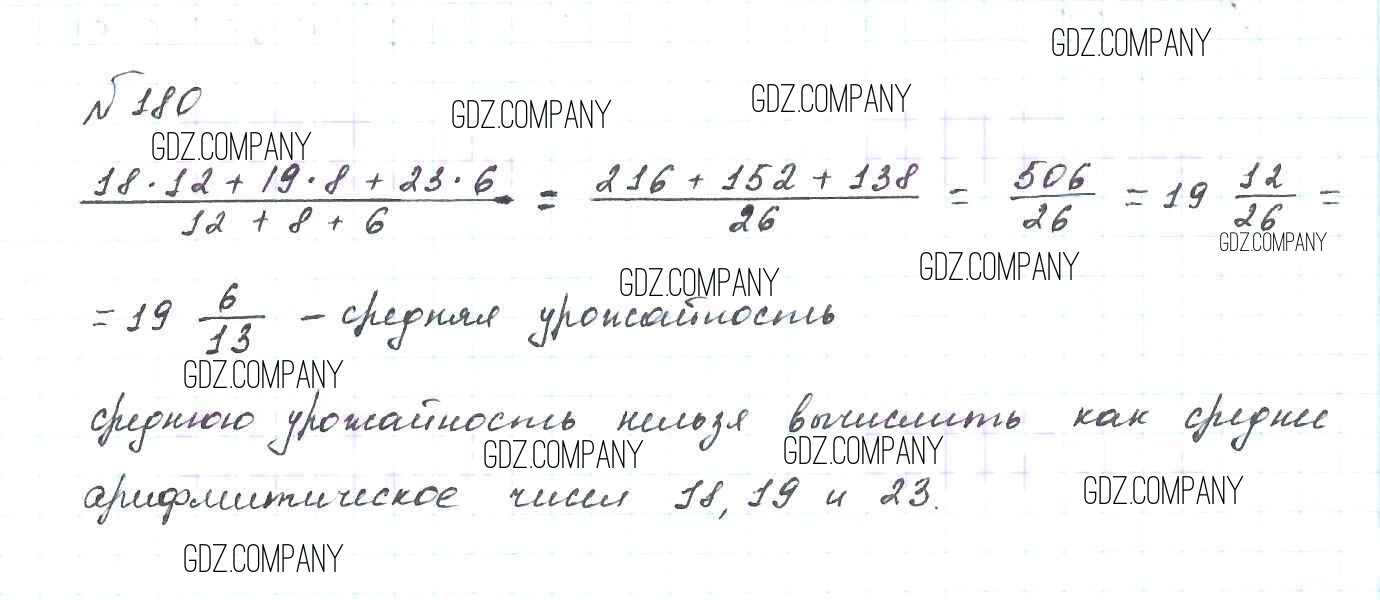 GDZ.COMPANY
№ 180
GDZ.COMPANY GDZ.COMPANY
GDZ.COMPANY
(18·12 + 19·8 + 23·6)/(12 + 8 + 6) = (216 + 152 + 138)/26 = 506/26 = 19 12/26 =
GDZ.COMPANY
GDZ.COMPANY GDZ.COMPANY
= 19 6/13 – средняя урожайность
GDZ.COMPANY
среднюю урожайность нельзя вычислить как среднее
GDZ.COMPANY GDZ.COMPANY
арифметическое чисел 18, 19 и 23.
GDZ.COMPANY
GDZ.COMPANY